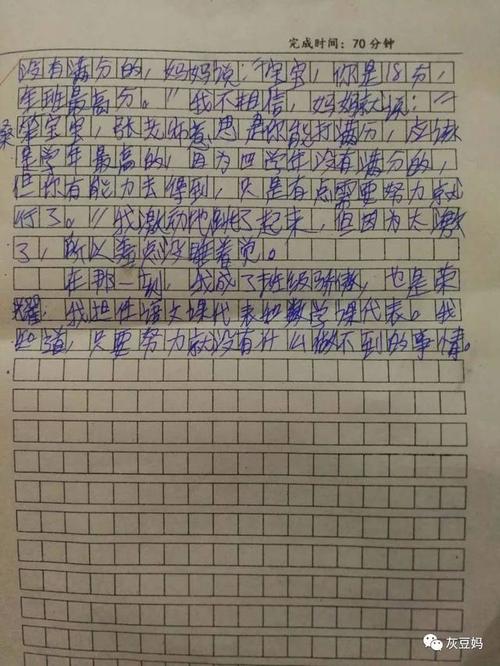 完成时间：70分钟
没有满分的，妈妈说：“宝宝，你是18分，
年班最高分。”我不相信，妈妈说：“
桑宝宝，张老师意思是你能打满分，应该
是学年最高的，因为四学年没有满分的，
但你有能力去得到，只是有点需要努力就
行了。”我激动地跳了起来，但因为太激
了，所以差点没睡着觉。
在那一刻，我成了班级骄傲，也是荣
耀，我担任语文课代表和数学课代表。我
知道，只要努力就没有什么做不到的事情。
灰豆妈